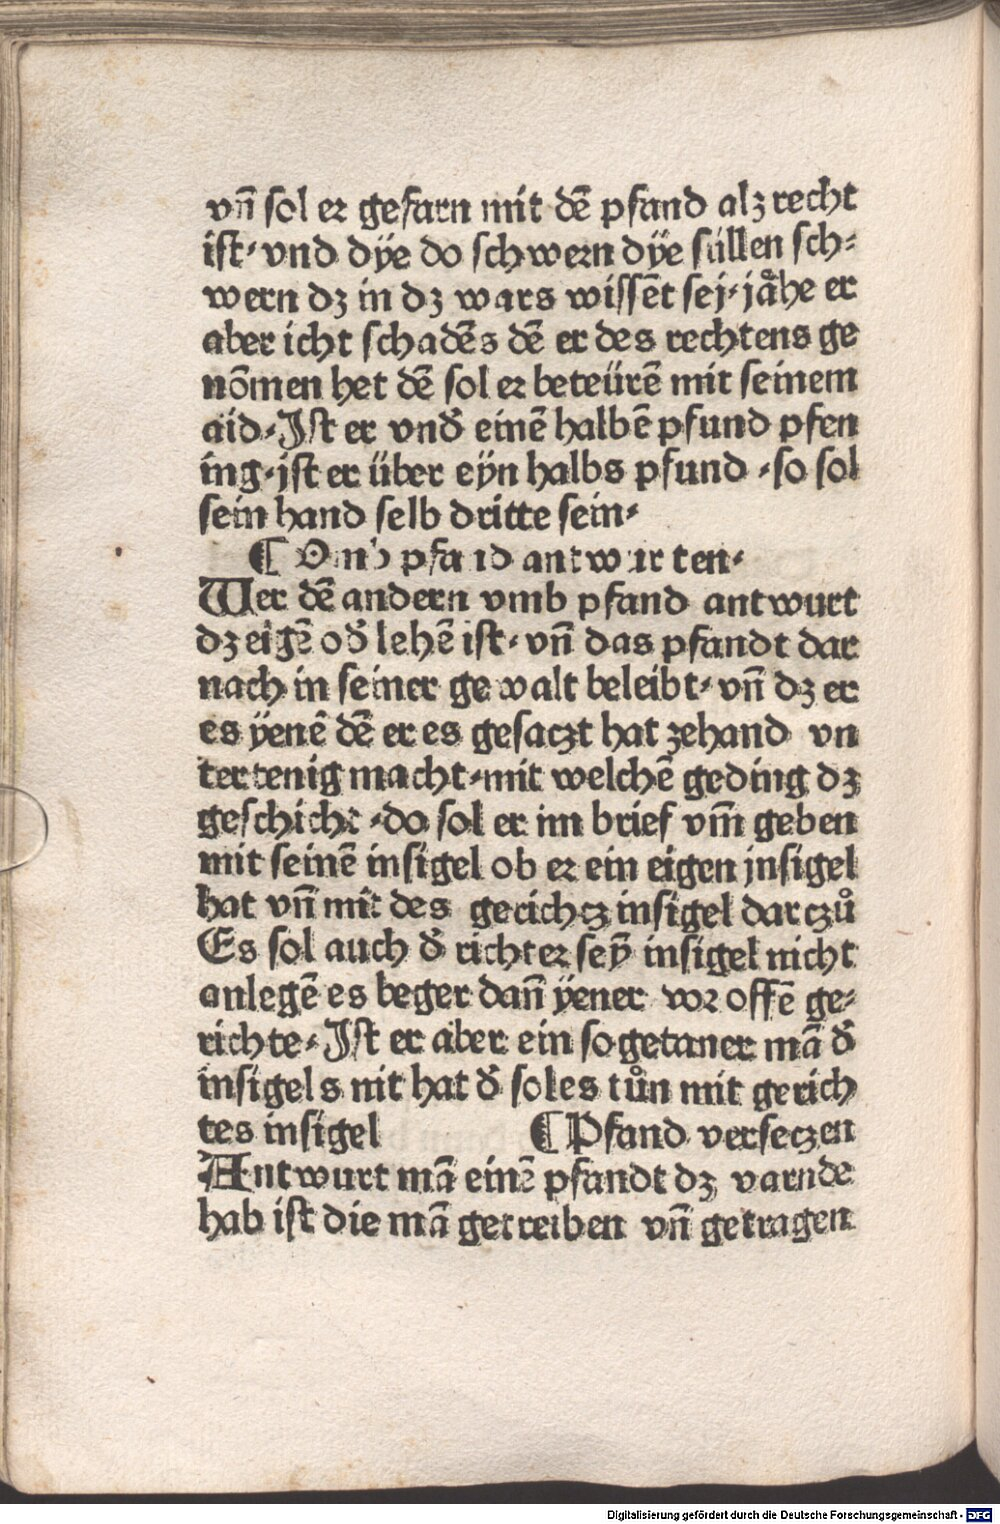 vñ sol er gefarn mit dē pfand alz recht
ist· vnd dÿe do schwern dÿe süllen sch⸗
wern dz in dz wars wissēt sej· jåhe er
aber icht schadēs dē er des rechtens ge
nōmen het dē sol er beteürē mit seinem
aid· Ist er vnđ einē halbē pfund pfen
ing· ist er über eÿn halbs pfund · so sol
sein hand selb dritte sein·
¶ Vmb pfand antwurten·
Wer dē andern vmb pfand antwurt
dz eigē ođ lehē ist· vñ das pfandt dar
nach in seiner gewalt beleibt· vñ dz er
es ÿenē dē er es gesaczt hat zehand vn
tertenig macht· mit welchē geding dz
geschicht · do sol er im brief vm̄ geben
mit seinē insigel ob er ein eigen jnsigel
hat vñ mit des gerichcz insigel darczů
Es sol auch đ richter seȳ insigel nicht
anlegē es beger dañ ÿener vor offē ge⸗
richte· Ist er aber ein so getaner mā đ
insigels nit hat đ sol es tůn mit gerich
tes insigel ¶ Pfand verseczen
Antwurt mā einē pfandt dz varnde
hab ist die mā getreiben vñ getragen
Digitalisierung gefördert durch die Deutsche Forschungsgemeinschaft - DFG